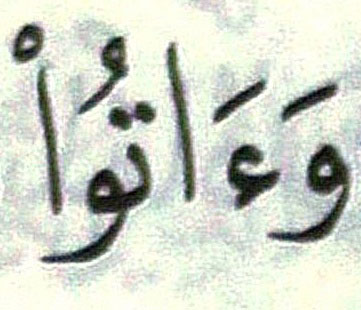 وَءَاتُواْ